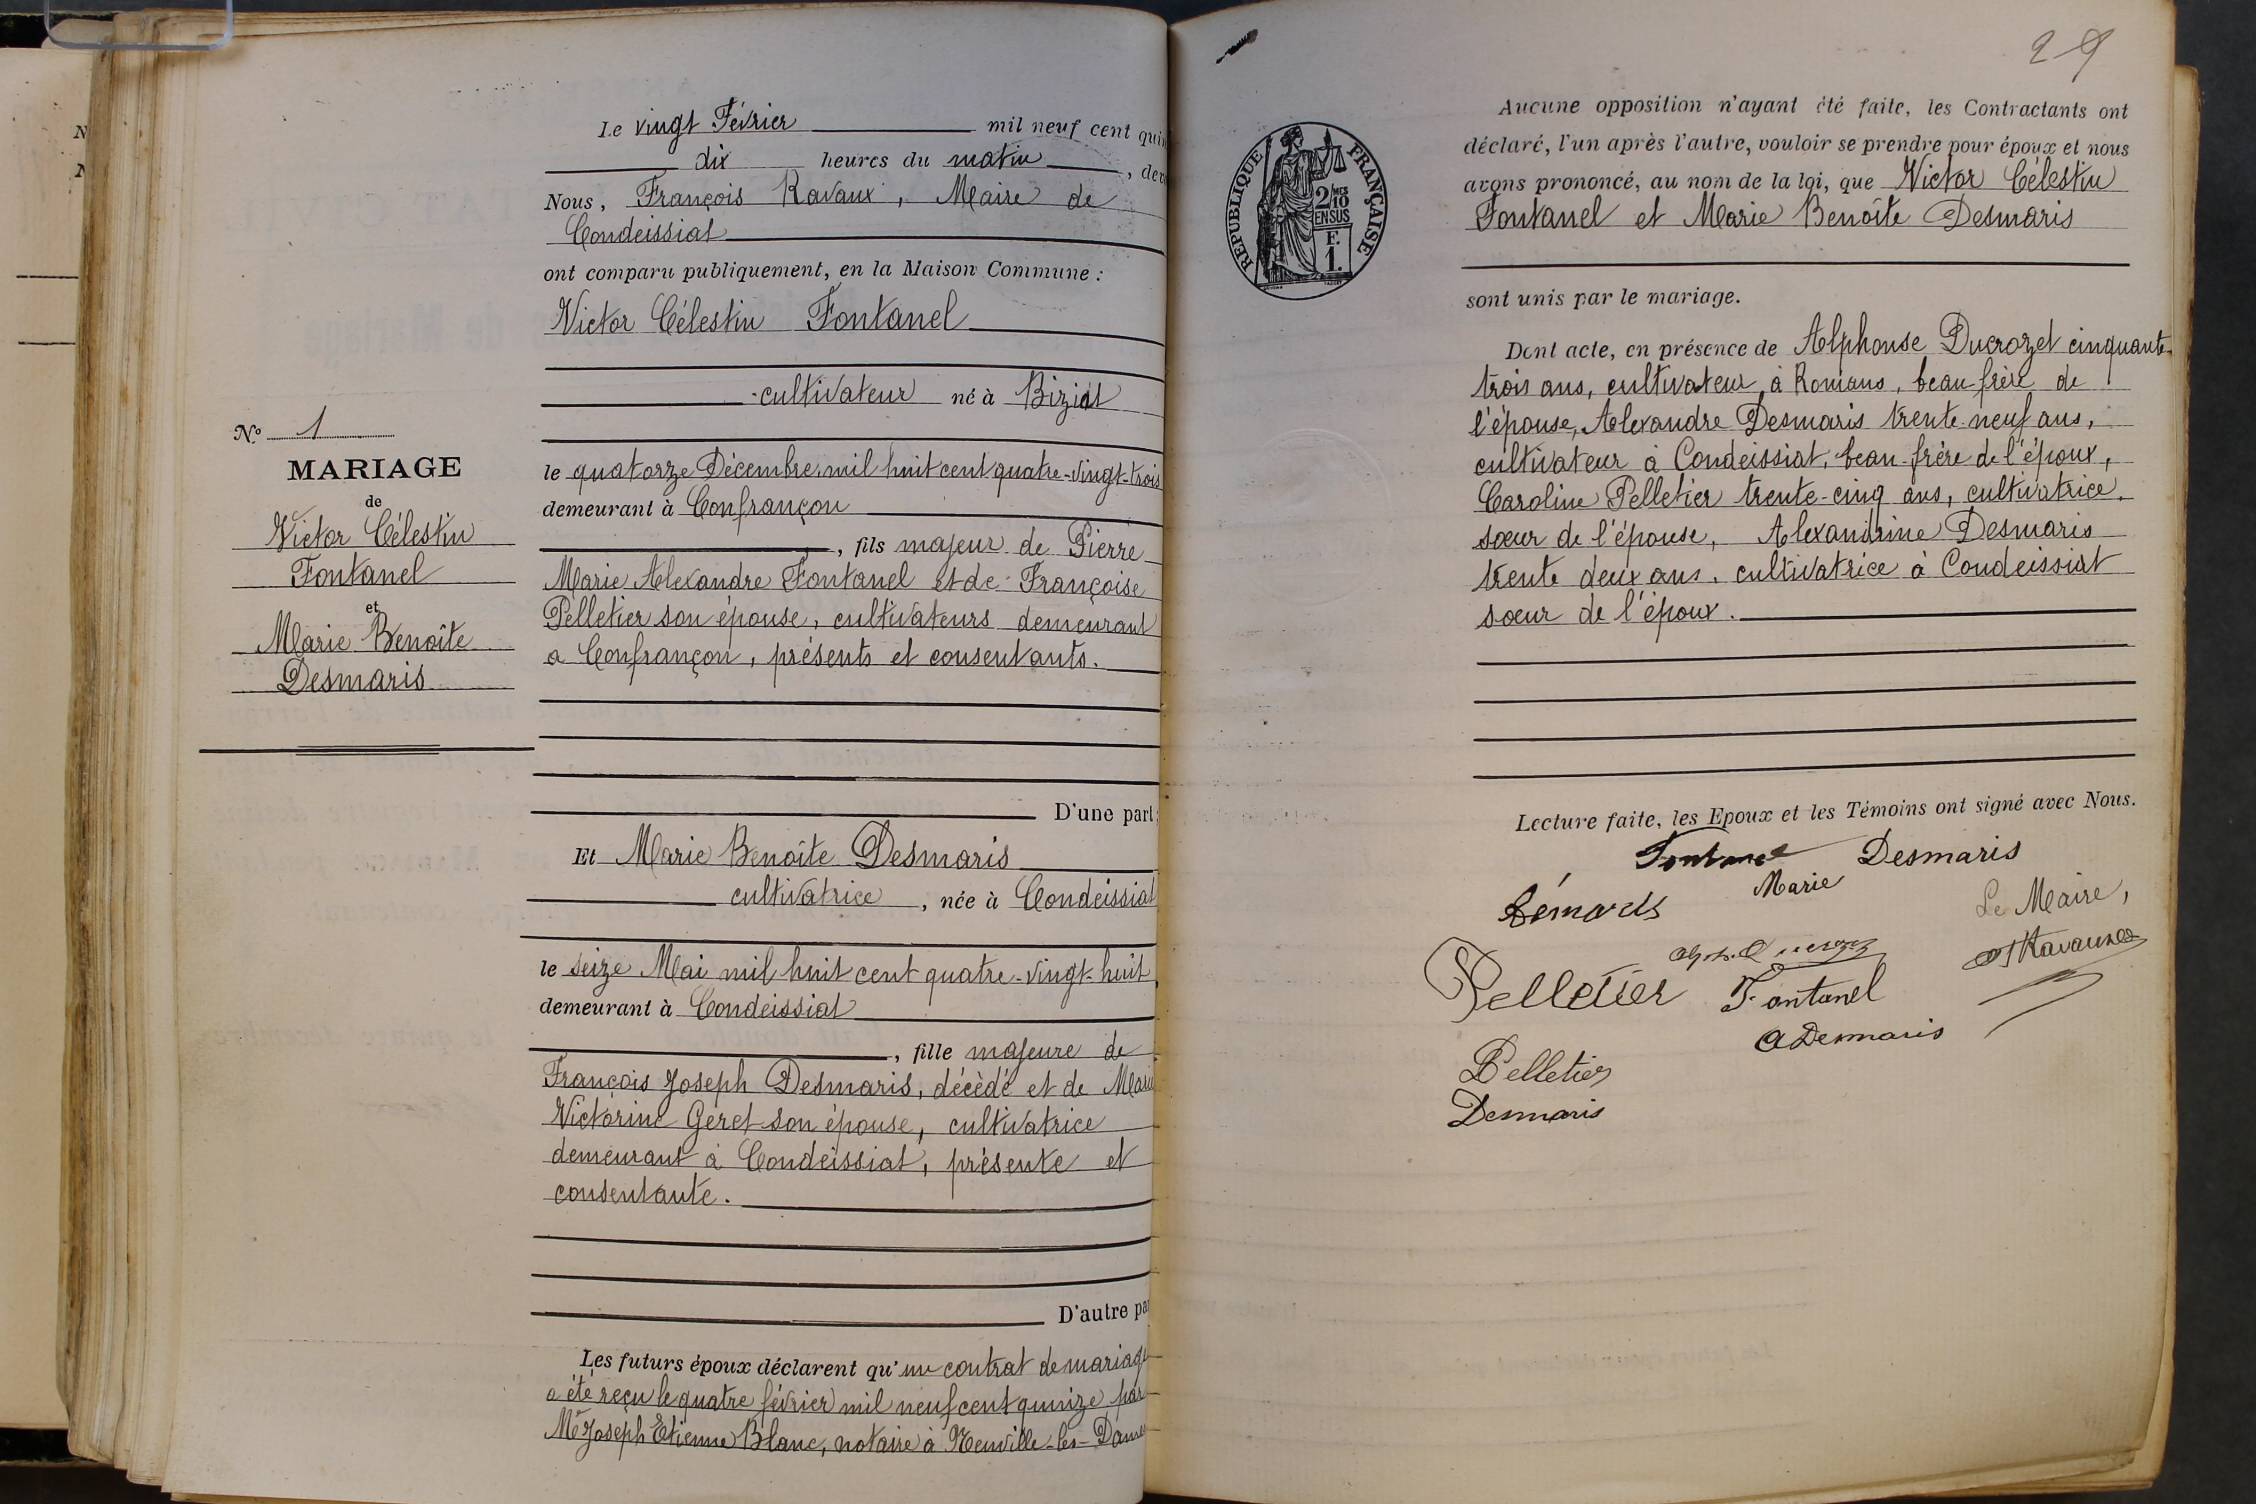 N
N
Nº 1
MARIAGE
de
Victor Célestin
Fontanel
et
Marie Benoîte
Desmaris
Le vingt Février mil neuf cent quin
dix heures du matin, dev
Nous, François Ravaux, Maire de
Condeissiat
ont comparu publiquement, en la Maison Commune :
Victor Célestin Fontanel
cultivateur né à Biziat
le quatorze Décembre mil huit cent quatre-vingt-trois
demeurant à Confrançon
, fils majeur de Pierre
Marie Alexandre Fontanel et de Françoise
Pelletier son épouse, cultivateurs demeurant
a Confrançon, présents et consentants.
D'une part ;
Et Marie Benoîte Desmaris
cultivatrice, née à Condeissiat
le seize Mai mil huit cent quatre-vingt-huit,
demeurant à Condeissiat
, fille majeure de
François Joseph Desmaris, décédé et de Marie
Victorine Geret son épouse, cultivatrice
demeurant à Condeissiat, présente et
consentante.
D'autre par
Les futurs époux déclarent qu'un contrat de mariage
a été reçu le quatre février mil neuf cent quinze par
Me Joseph Etienne Blanc, notaire à Neuville-les-Dames
29
RÉPUBLIQUE FRANÇAISE
2/10 MES
EN SUS
F.
1.
Aucune opposition n'ayant été faite, les Contractants ont
déclaré, l'un après l'autre, vouloir se prendre pour époux et nous
avons prononcé, au nom de la loi, que Victor Célestin
Fontanel et Marie Benoîte Desmaris
sont unis par le mariage.
Dont acte, en présence de Alphonse Ducrozet cinquante-
trois ans, cultivateur à Romans, beau-frère de
l'épouse, Alexandre Desmaris trente-neuf ans,
cultivateur à Condeissiat, beau-frère de l'époux,
Caroline Pelletier trente-cinq ans, cultivatrice,
sœur de l'épouse, Alexandrine Desmaris
trente deux ans, cultivatrice à Condeissiat
sœur de l'époux.
Lecture faite, les Epoux et les Témoins ont signé avec Nous.
Fontanel Desmaris
Marie
Le Maire,
Ravaux
Pelletier Fontanel
A Desmaris
Pelletier
Desmaris